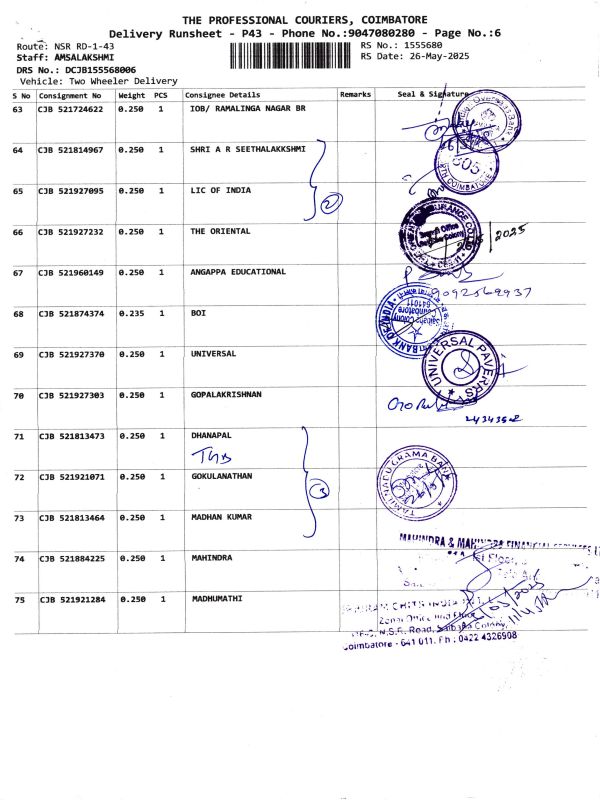 THE PROFESSIONAL COURIERS, COIMBATORE
Delivery Runsheet - P43 - Phone No.:9047080280 - Page No.:6
Route: NSR RD-1-43
RS No.: 1555680
Staff: AMSALAKSHMI
RS Date: 26-May-2025
DRS No.: DCJB155568006
Vehicle: Two Wheeler Delivery
S No Consignment No Weight PCS Consignee Details Remarks Seal & Signature
63 CJB 521724622 0.250 1 IOB/ RAMALINGA NAGAR BR
64 CJB 521814967 0.250 1 SHRI A R SEETHALAKKSHMI
605
COIMBATORE
65 CJB 521927095 0.250 1 LIC OF INDIA
2
66 CJB 521927232 0.250 1 THE ORIENTAL
2025
67 CJB 521960149 0.250 1 ANGAPPA EDUCATIONAL
9092569937
68 CJB 521874374 0.235 1 BOI
Saibaba Colony
Coimbatore
641011
69 CJB 521927370 0.250 1 UNIVERSAL
UNIVERSAL PAVERRS
70 CJB 521927303 0.250 1 GOPALAKRISHNAN
71 CJB 521813473 0.250 1 DHANAPAL
TNGB
72 CJB 521921071 0.250 1 GOKULANATHAN
3
TAMIL NADU GRAMA BANK
73 CJB 521813464 0.250 1 MADHAN KUMAR
MAHINDRA & MAHINDRA FINANCIAL SERVICES
74 CJB 521884225 0.250 1 MAHINDRA
75 CJB 521921284 0.250 1 MADHUMATHI
CHITS INDIA
Zonal Office
N.S.R. Road, Saibaba Colony,
Coimbatore - 641 011. Ph : 0422 4326908